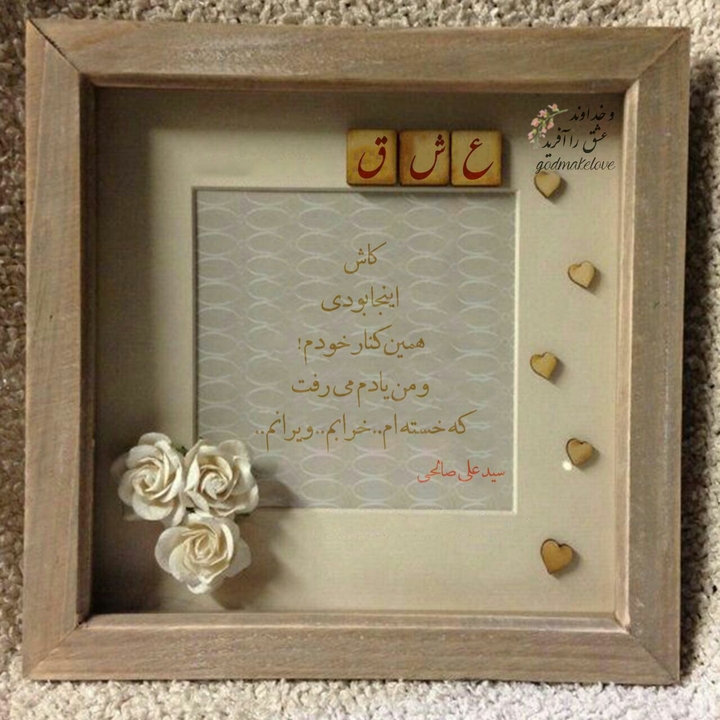 و خداوند
عشق را آفرید
godmakelove
ع ش ق
کاش
اینجا بودی
همین کنار خودم!
و من یادم می رفت
که خسته ام..خرابم..ویرانم..
سید علی صالحی